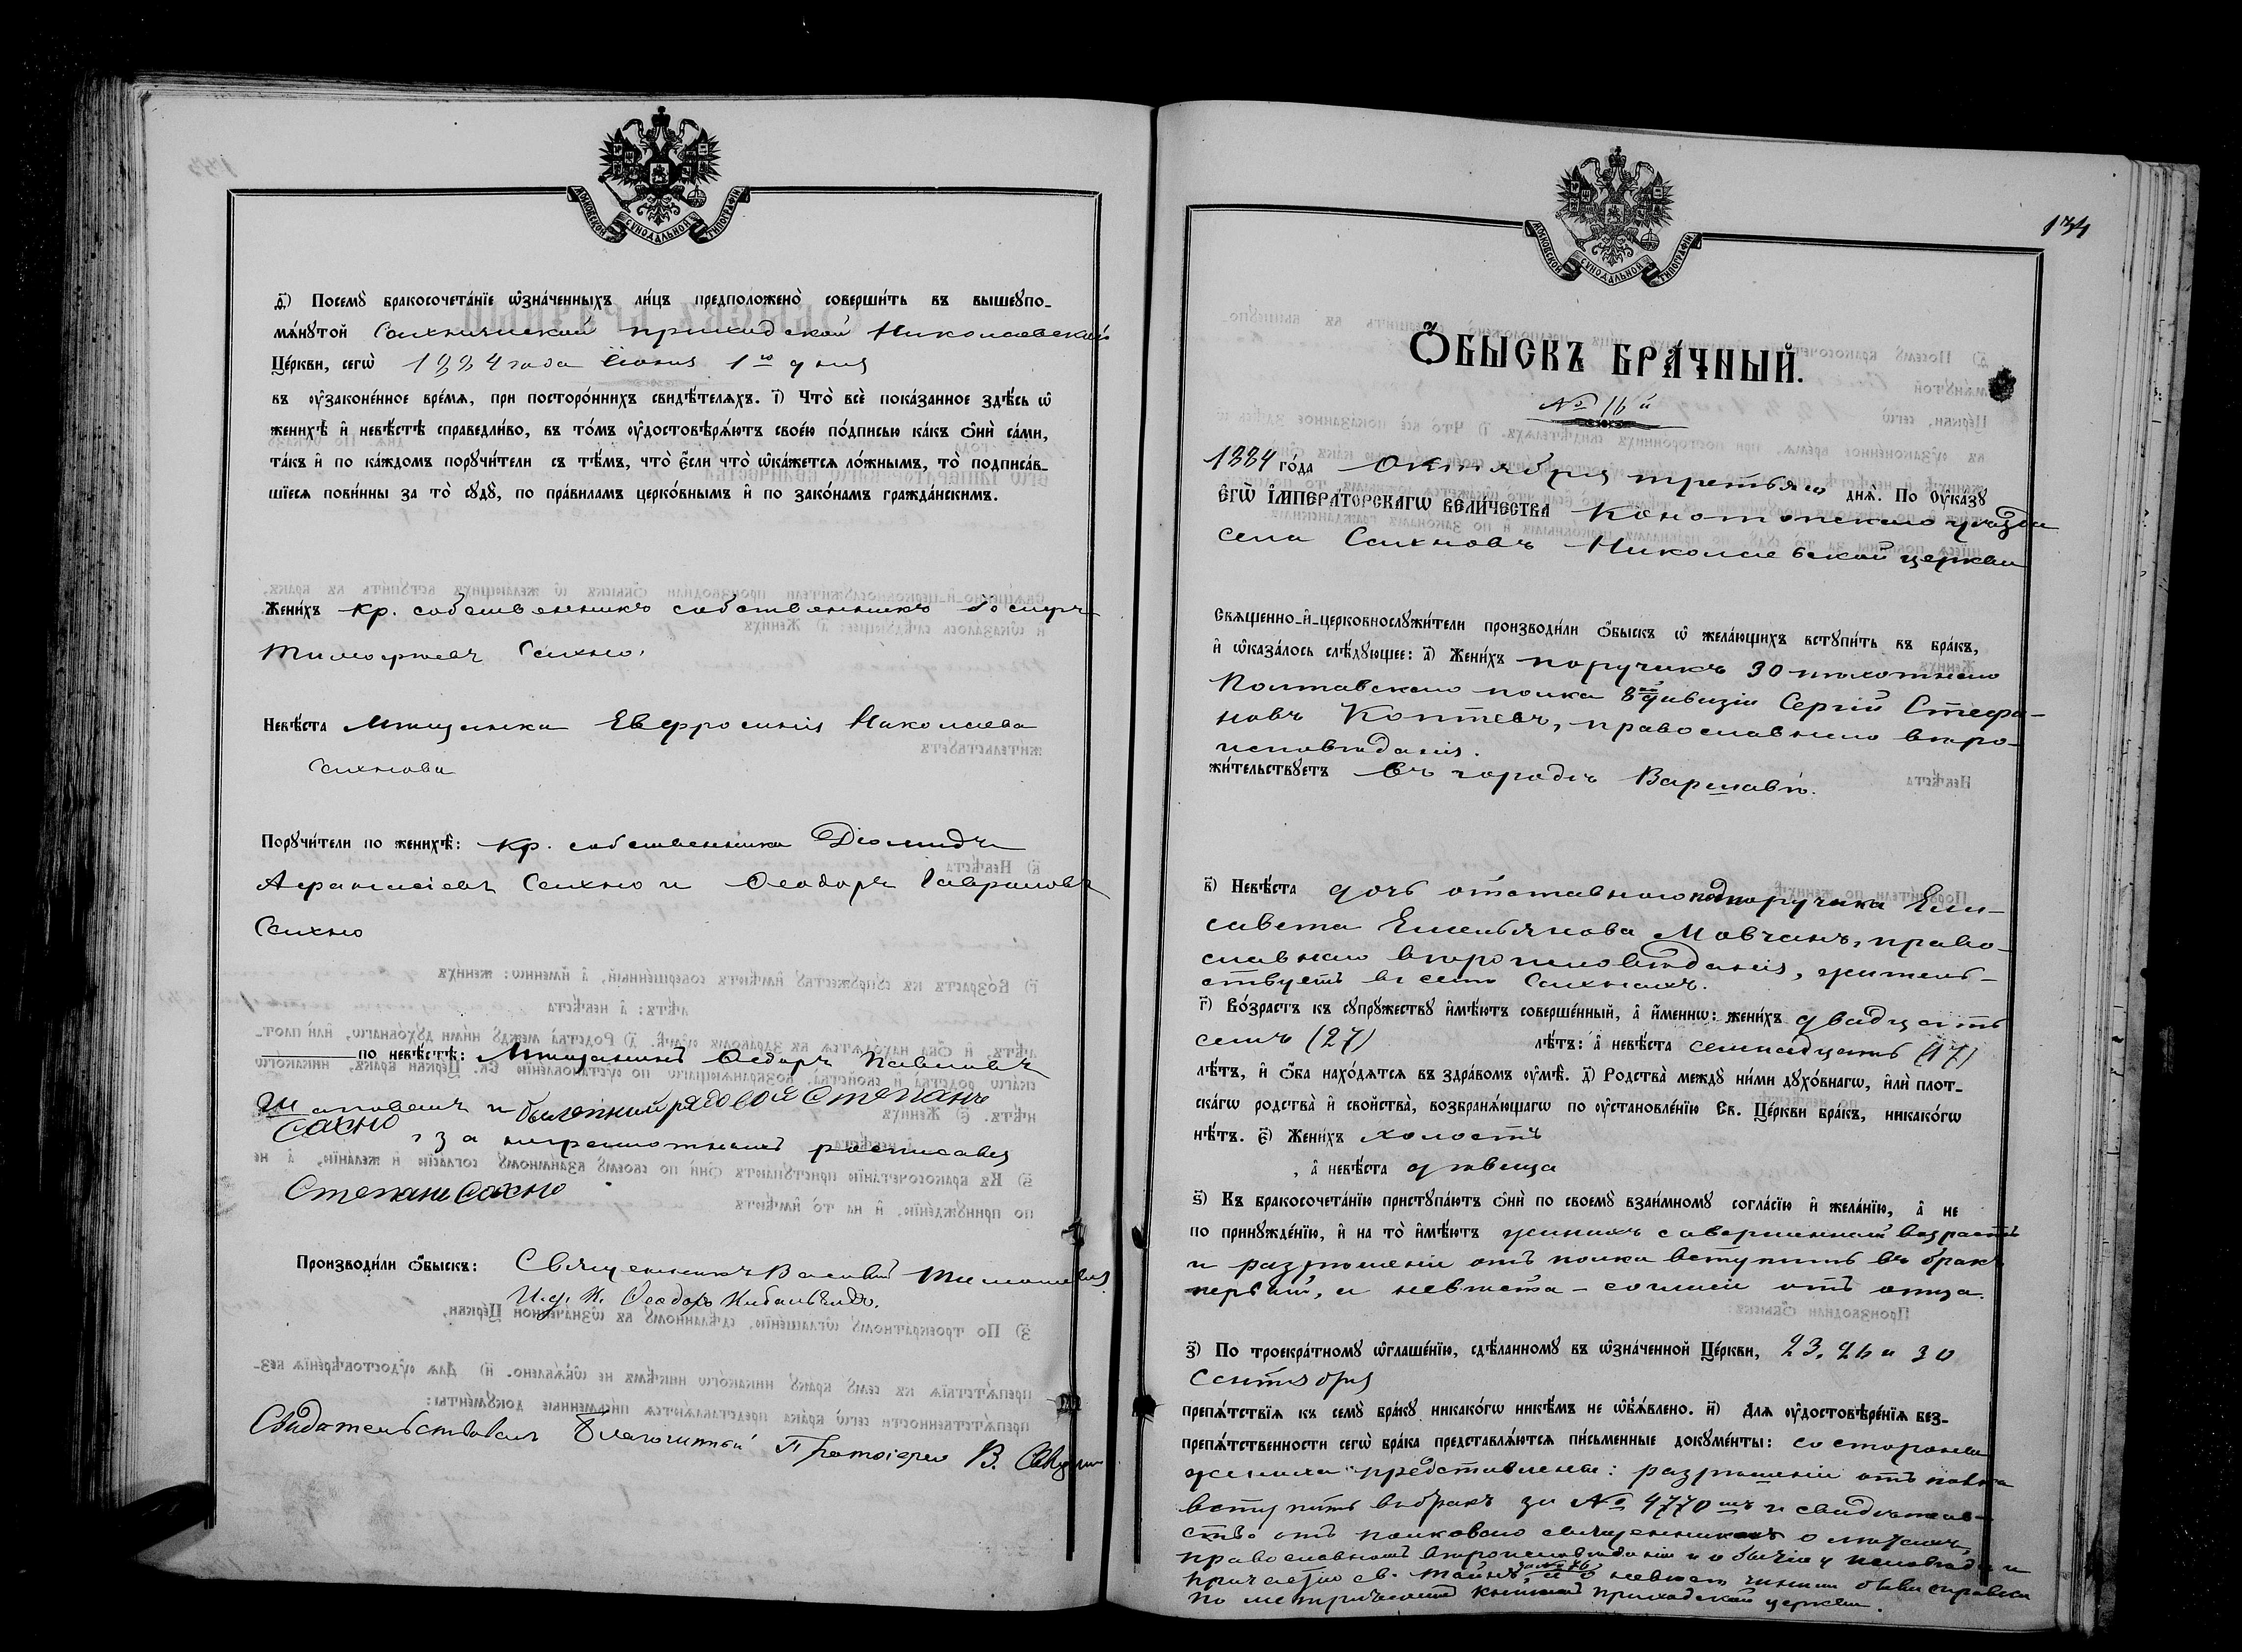 МОСКОВСКОЙ СѴНОДАЛЬНОЙ ТИПОГРАФІИ
д҃) Посемꙋ̀ бракосочета́нїе ѡ҆зна́ченныхъ ли́цъ предположено̀ соверши́ть въ вышеꙋпо-
мѧ́нꙋтой Сахновской приходской Николаевской
Це́ркви, сегѡ̀ 1884 года Іюня 1го дня
въ ᲂу҆законе́нное вре́мѧ, при посторо́ннихъ свидѣ́телѧхъ. і҃) Что̀ всѐ пока́занное здѣ́сь ѡ҆
женихѣ̀ и҆ невѣ́стѣ справедли́во, въ то́мъ ᲂу҆достовѣрѧ́ютъ свое́ю по́дписью ка́къ ѻ҆нѝ са́ми,
та́къ и҆ по ка́ждомъ порꙋчи́тели съ тѣ́мъ, что̀ є҆́сли что̀ ѡ҆ка́жетсѧ ло́жнымъ, то̀ подписа́в-
шїесѧ пови́нны за то̀ сꙋдꙋ̀, по пра́виламъ церко́внымъ и҆ по зако́намъ гражда́нскимъ.
Жени́хъ кр. собственникъ собственникъ
Тимофеевъ Сахно.
Невѣ́ста Мѣщанка Евфросинія Николаева
Сахнова
Порꙋчи́тели по женихѣ̀: кр. собственники Діомидъ
Афанасіевъ Сахно и Ѳеодоръ Гавриловъ
Сахно
по невѣ́стѣ: Мѣщанинъ Ѳедоръ Павловъ
и билетний рядовой Степанъ
Сахно, за неграмотныхъ росписався
Степанъ Сахно
Производи́ли ѻ҆́быскъ: Священникъ Василій
И. д. п. Ѳеодоръ
Свидѣтельствовалъ Благочинный Протоіерей В.
134
МОСКОВСКОЙ СѴНОДАЛЬНОЙ ТИПОГРАФІИ
Ѻ҆́БЫСКЪ БРА́ЧНЫЙ.
№ 16й
1884 го́да Октября третьяго днѧ̀. По ᲂу҆ка́зꙋ
Є҆ГѠ̀ І҆МПЕРА́ТОРСКАГѠ ВЕЛИ́ЧЕСТВА Конотопскаго уѣзда
села Сахновъ Николаевской церкви
Свѧщенно-и҆-церковнослꙋжи́тели производи́ли ѻ҆́быскъ ѡ҆ жела́ющихъ встꙋпи́ть въ бра́къ,
и҆ ѡ҆каза́лось слѣ́дꙋющее: а҃) Жени́хъ поручикъ 30 пѣхотнаго
Полтавскаго полка 8й дивизіи Сергій Стефа-
новъ Коптевъ, православнаго вѣро-
исповѣданія.
жи́тельствꙋетъ въ городѣ Варшавѣ.
в҃) Невѣ́ста дочь отставного подпоручика Ели-
савета Емельянова Мовчанъ, право-
славнаго вѣроисповѣданія, житель-
ствуетъ въ селѣ Сахнахъ.
г҃) Во́зрастъ къ сꙋпрꙋжествꙋ̀ и҆мѣ́ютъ соверше́нный, а҆ и҆́меннѡ: жени́хъ двадцать
семъ (27) лѣ́тъ: а҆ невѣ́ста семнадцать (17)
лѣ́тъ, и҆ ѻ҆́ба нахо́дѧтсѧ въ здра́вомъ ᲂу҆мѣ̀. д҃) Родства̀ междꙋ̀ ни́ми дꙋхо́внагѡ, и҆лѝ плот-
ска́гѡ родства̀ и҆ сво́йства, возбранѧ́ющагѡ по ᲂу҆становле́нїю Св. Це́ркви бра́къ, никако́гѡ
нѣ́тъ. є҃) Жени́хъ холостъ
, а҆ невѣ́ста дѣвица
ѕ҃) Къ бракосочета́нїю пристꙋпа́ютъ ѻ҆нѝ по своемꙋ̀ взаи́мномꙋ согла́сїю и҆ жела́нїю, а҆ не
по принꙋжде́нїю, и҆ на то̀ и҆мѣ́ютъ женихъ совершенный возрастъ
и разрѣшеніе отъ полка вступить въ бракъ
первый, а невѣста – согласіе отъ отца.
з҃) По троекра́тномꙋ ѡ҆глаше́нїю, сдѣ́ланномꙋ въ ѡ҆зна́ченной Це́ркви, 23, 26 и 30
Сентября
препѧ́тствїѧ къ семꙋ̀ бра́кꙋ никако́гѡ никѣ́мъ не ѡ҆б̾ѧ́влено. и҃) Длѧ̀ ᲂу҆достовѣре́нїѧ без-
препѧ́тственности сегѡ̀ бра́ка представлѧ́ютсѧ пи́сьменные докꙋме́нты: со стороны
жениха представлены: разрѣшеніе отъ полка
вступить въ бракъ за № 4770мъ и свидѣтель-
ство отъ полковаго священника о
православномъ вѣроисповѣданіи и о бытіи у исповѣди и
причастію св. Таинъ
по метрическимъ книгамъ приходской церкви.